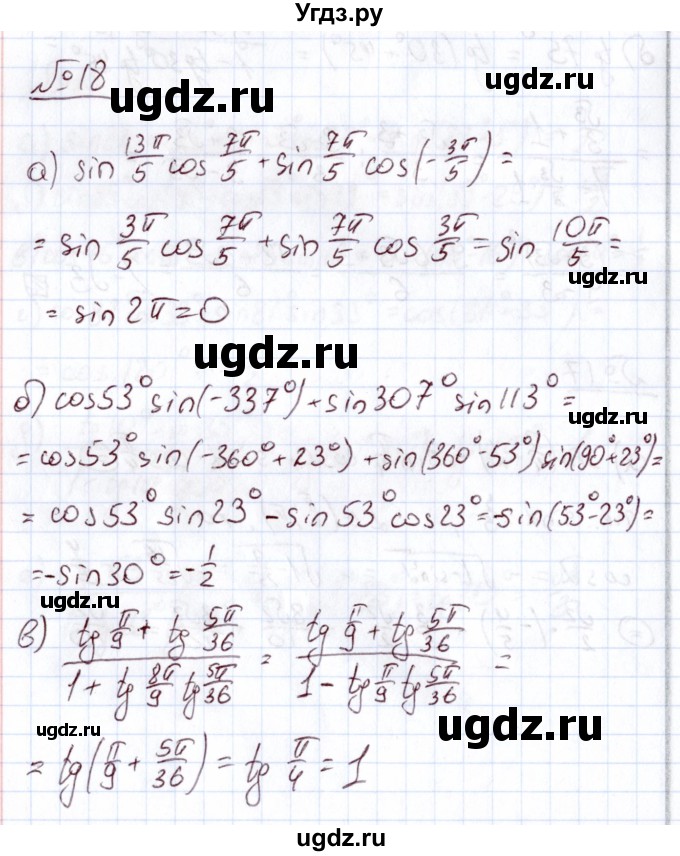 Угдз.ру
№18
ugdz.ru
а) sin 13π/5 cos 7π/5 + sin 7π/5 cos(-3π/5) =
= sin 3π/5 cos 7π/5 + sin 7π/5 cos 3π/5 = sin 10π/5 =
ugdz.ru
= sin 2π = 0
ugdz.ru
б) cos 53° sin(-337°) + sin 307° sin 113° =
= cos 53° sin(-360° + 23°) + sin(360° - 53°) sin(90° + 23°) =
= cos 53° sin 23° - sin 53° cos 23° = -sin(53° - 23°) =
= -sin 30° = -1/2
ugdz.ru
ugdz.ru
в) (tg π/9 + tg 5π/36)/(1 + tg 8π/9 tg 5π/36) = (tg π/9 + tg 5π/36)/(1 - tg π/9 tg 5π/36) =
ugdz.ru
ugdz.ru
= tg(π/9 + 5π/36) = tg π/4 = 1
ugdz.ru